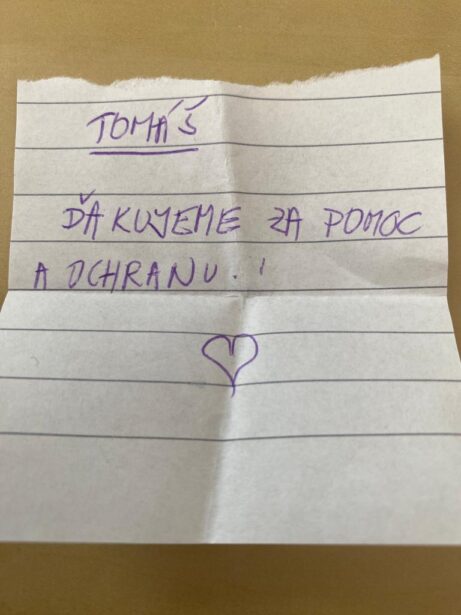 TOMÁŠ
ĎAKUJEME ZA POMOC
A OCHRANU.!